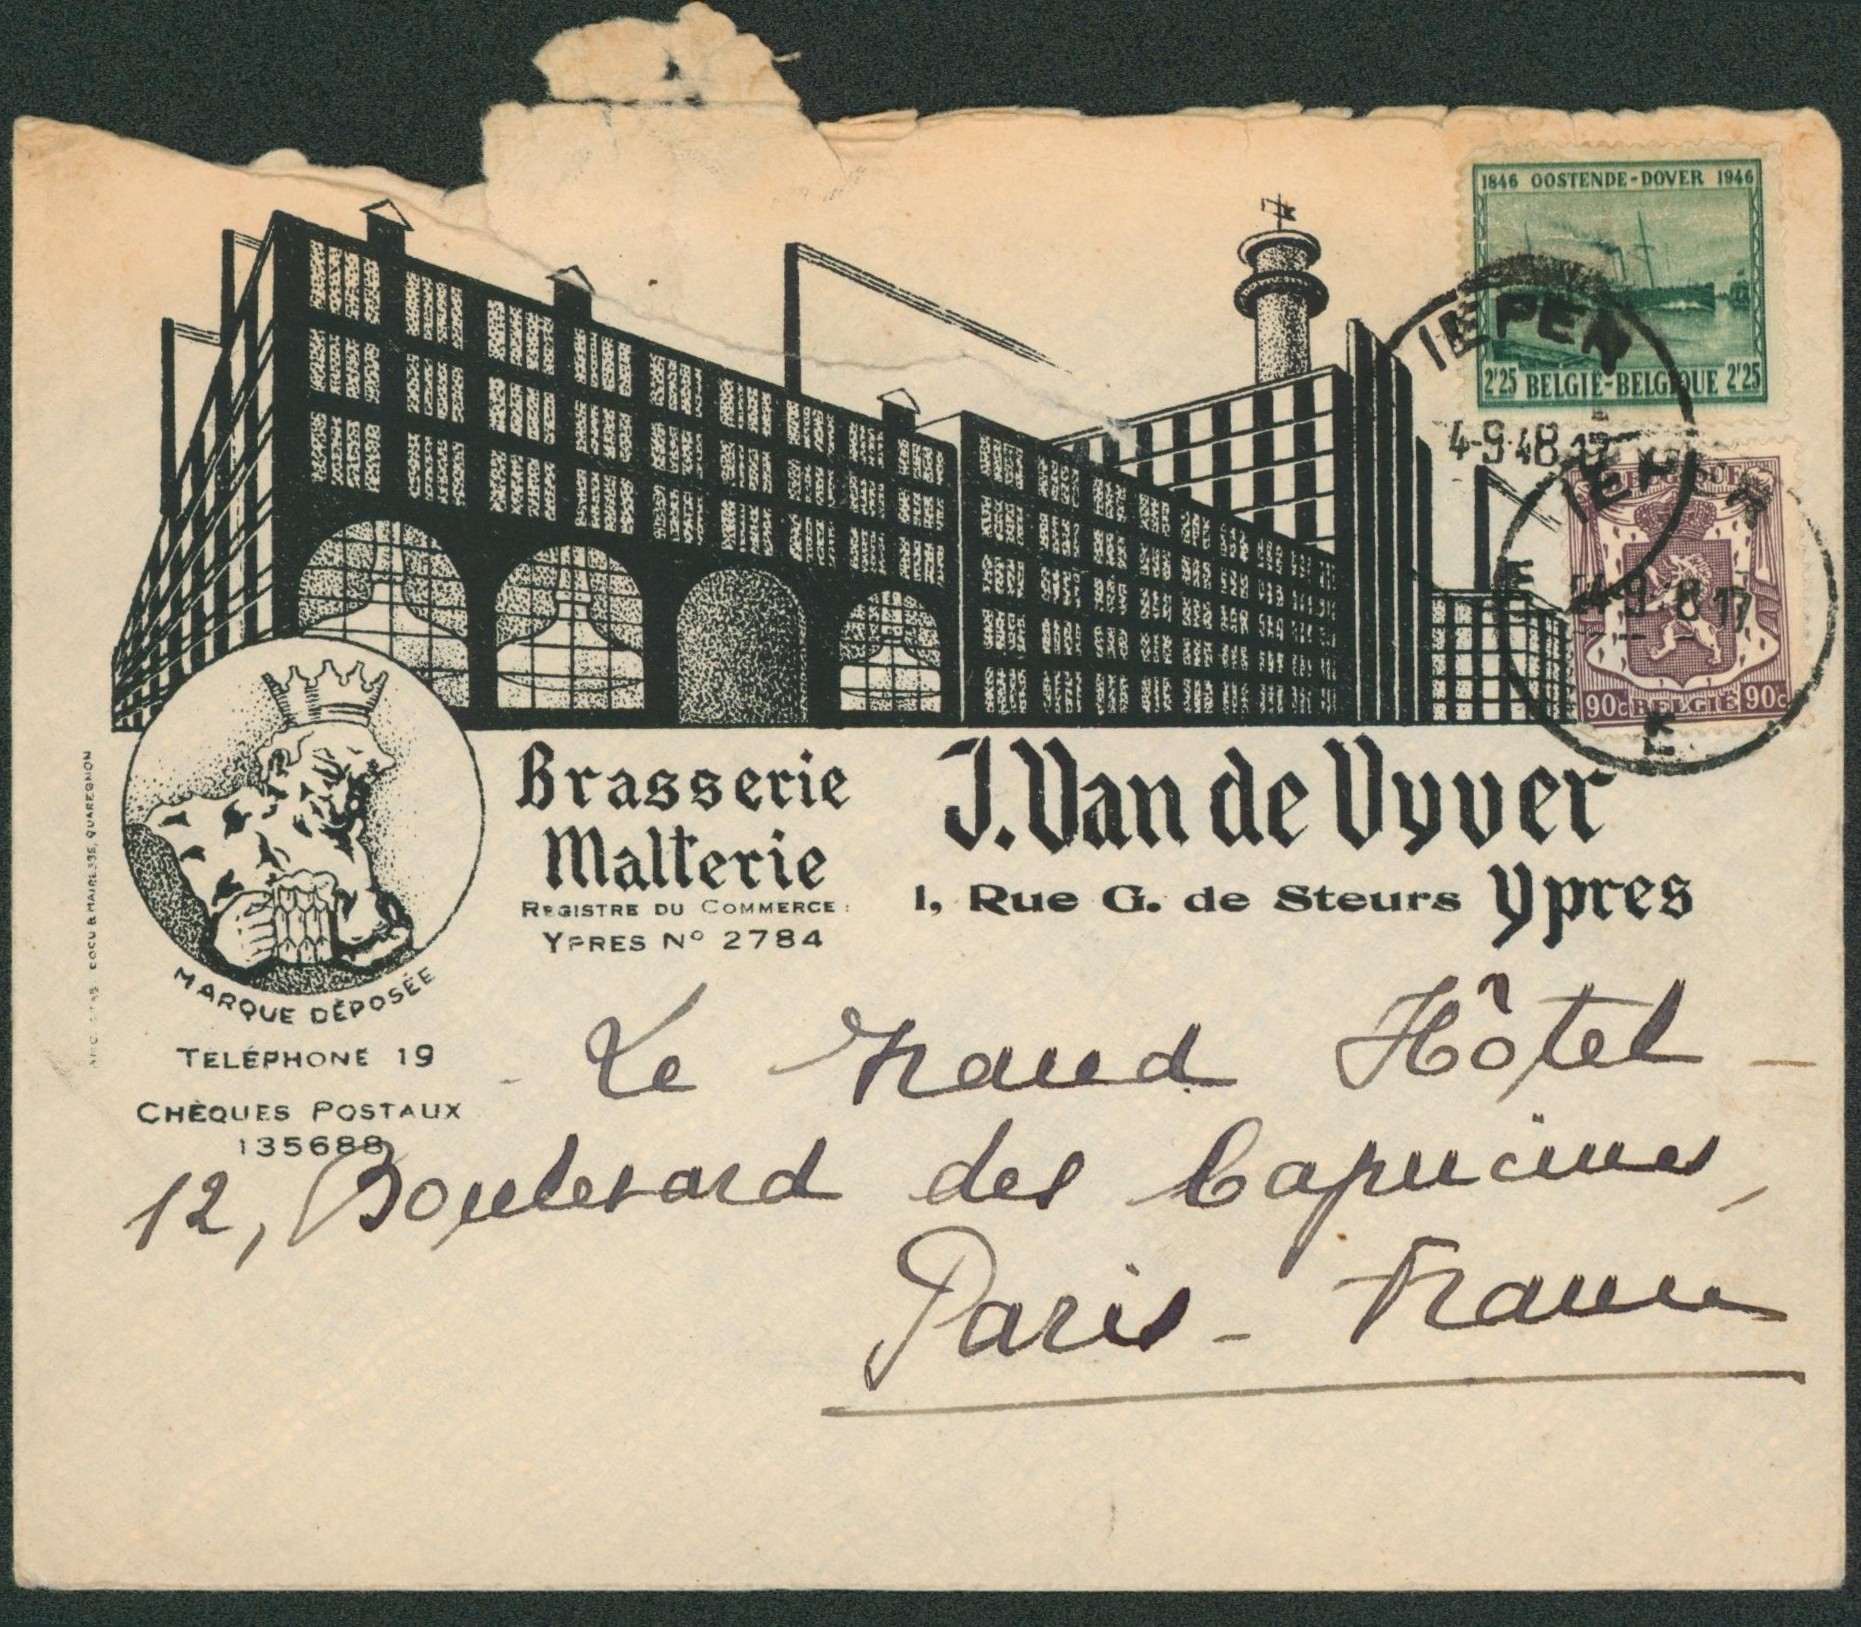 1846 OOSTENDE-DOVER 1946
2'25 BELGIË-BELGIQUE 2'25
IEPER
4-9-48 17
IEPER
E
4-9 8 17
E
90c BELGIË 90c
Brasserie
Malterie
REGISTRE DU COMMERCE:
YPRES Nº 2784
J. Van de Vyver
1, Rue G. de Steurs Ypres
COCU & MAIRESSE, QUAREGNON
MARQUE DÉPOSÉE
TÉLÉPHONE 19
CHÈQUES POSTAUX
135688
Le Grand Hôtel -
12, Boulevard des Capucines,
Paris - France